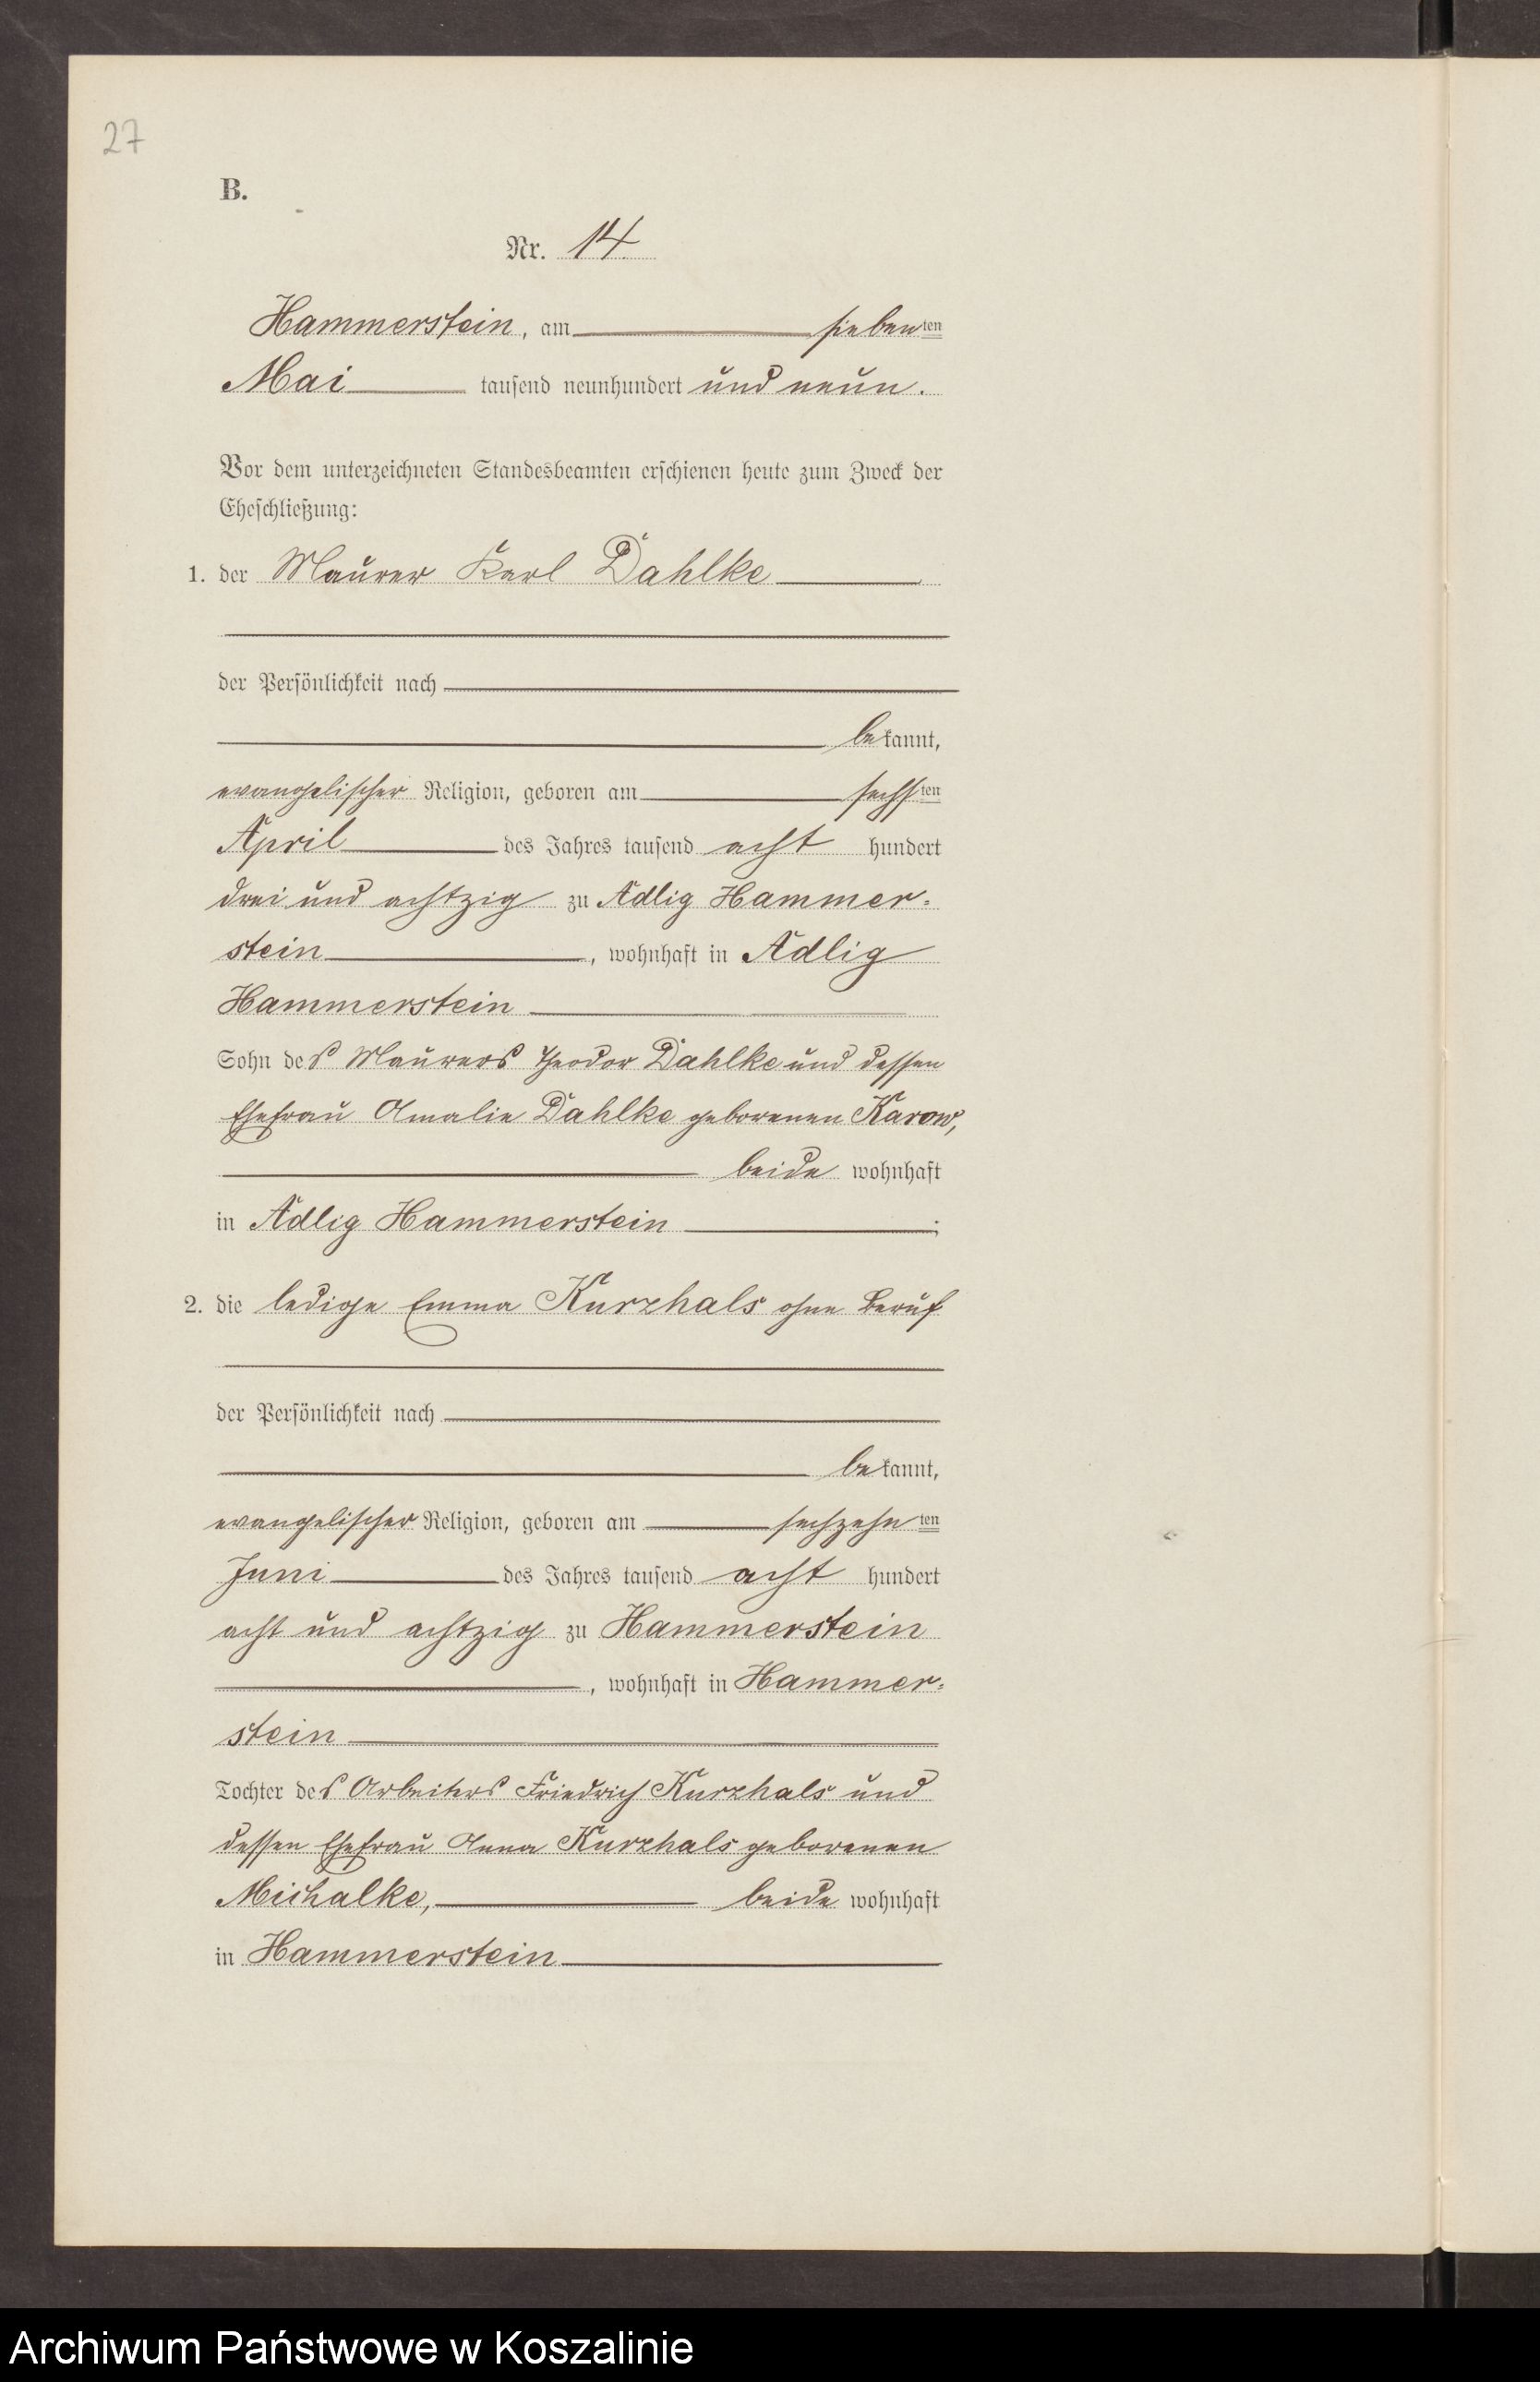 27
B.
Nr. 14
Hammerstein, am siebenten
Mai tausend neunhundert und neun.
Vor dem unterzeichneten Standesbeamten erschienen heute zum Zweck der
Eheschließung:
1. der Maurer Karl Dahlke
der Persönlichkeit nach
bekannt,
evangelischer Religion, geboren am sechsten
April des Jahres tausend acht hundert
drei und achtzig zu Adlig Hammer-
stein, wohnhaft in Adlig
Hammerstein
Sohn des Maurers Theodor Dahlke und dessen
Ehefrau Amalie Dahlke geborenen Karow,
beide wohnhaft
in Adlig Hammerstein;
2. die ledige Emma Kurzhals ohne Beruf
der Persönlichkeit nach
bekannt,
evangelischer Religion, geboren am sechzehnten
Juni des Jahres tausend acht hundert
acht und achtzig zu Hammerstein
, wohnhaft in Hammer-
stein
Tochter des Arbeiters Friedrich Kurzhals und
dessen Ehefrau Anna Kurzhals geborenen
Michalke, beide wohnhaft
in Hammerstein
Archiwum Państwowe w Koszalinie